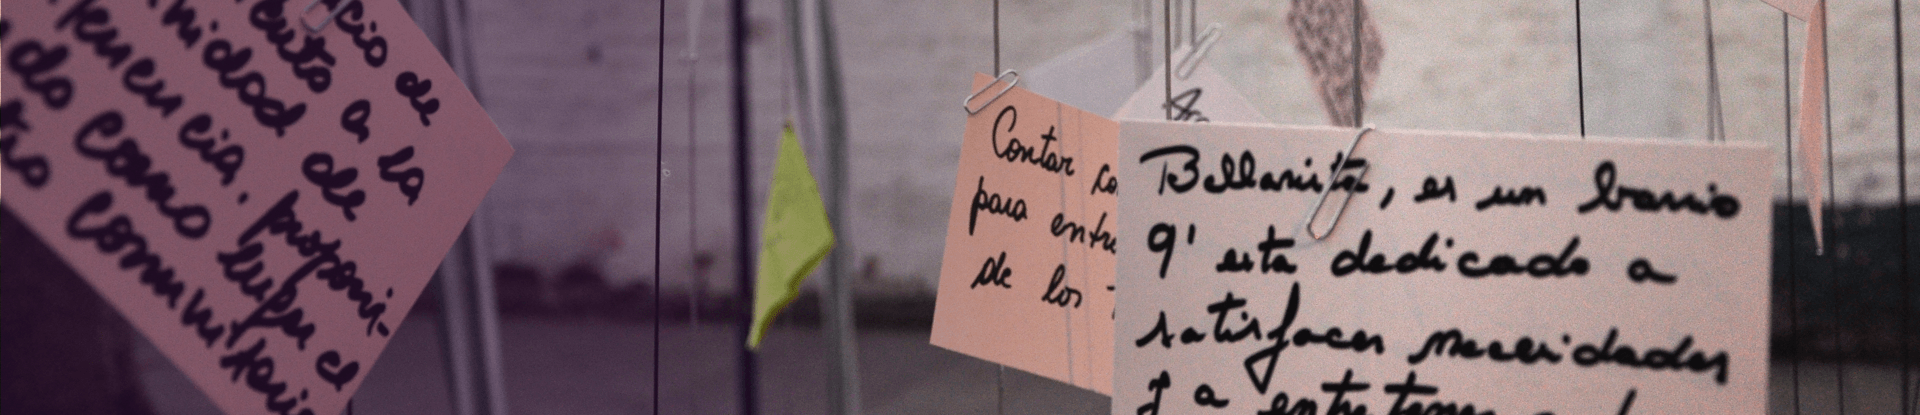 cio de
ento a la
nidad de
encia, proponi-
do como lugar e
comunitario
Contar co
para entre
de los
Bellavista, es un barrio
q' esta dedicado a
satisfacer necesidades
y a entretener